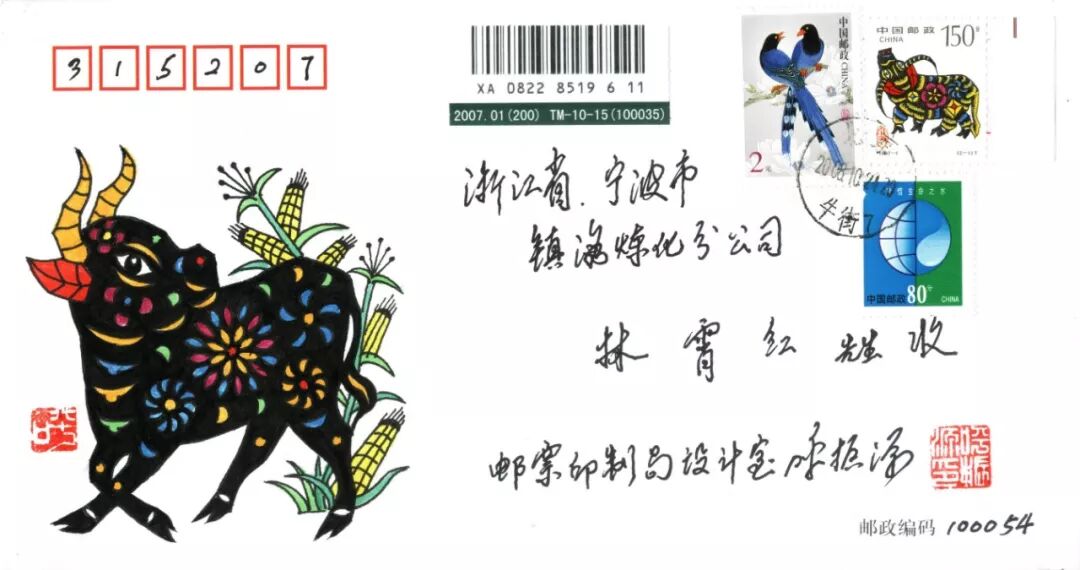 315207
XA 0822 8519 6 11
2007.01(200) TM-10-15(100035)
中国邮政 CHINA
2元
中国邮政 150分
CHINA
牛街
中国邮政 80分 CHINA
浙江省.宁波市
镇海炼化分公司
林霄红 先生 收
邮票印制局设计室 呼振源
邮政编码 100054